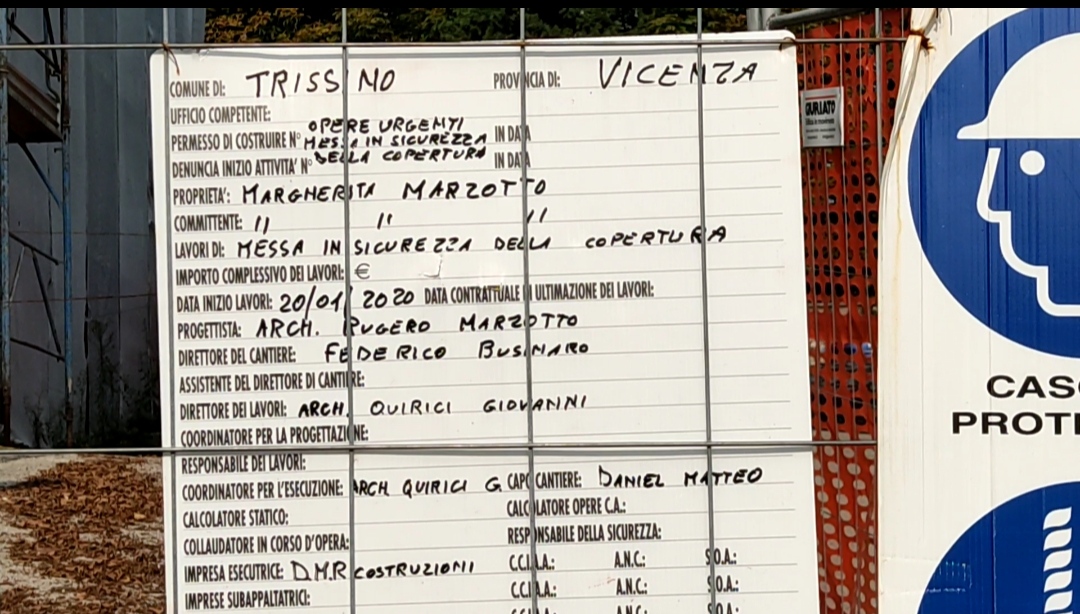 COMUNE DI: TRISSINO PROVINCIA DI: VICENZA
UFFICIO COMPETENTE:
OPERE URGENTI
PERMESSO DI COSTRUIRE N° MESSA IN SICUREZZA IN DATA
DENUNCIA INIZIO ATTIVITA' N° DELLA COPERTURA IN DATA
PROPRIETA': MARGHERITA MARZOTTO
COMMITTENTE: " " "
LAVORI DI: MESSA IN SICUREZZA DELLA COPERTURA
IMPORTO COMPLESSIVO DEI LAVORI: €
DATA INIZIO LAVORI: 20/01/2020 DATA CONTRATTUALE DI ULTIMAZIONE DEI LAVORI:
PROGETTISTA: ARCH. RUGERO MARZOTTO
DIRETTORE DEL CANTIERE: FEDERICO BUSINARO
ASSISTENTE DEL DIRETTORE DI CANTIERE:
DIRETTORE DEI LAVORI: ARCH. QUIRICI GIOVANNI
COORDINATORE PER LA PROGETTAZIONE:
RESPONSABILE DEI LAVORI:
COORDINATORE PER L'ESECUZIONE: ARCH QUIRICI G. CAPO CANTIERE: DANIEL MATTEO
CALCOLATORE STATICO: CALCOLATORE OPERE C.A.:
COLLAUDATORE IN CORSO D'OPERA: RESPONSABILE DELLA SICUREZZA:
IMPRESA ESECUTRICE: D.M.R COSTRUZIONI C.C.I.A.A.: A.N.C.: S.O.A.:
IMPRESE SUBAPPALTATRICI: C.C.I.A.A.: A.N.C.: S.O.A.:
C.C.I.A.A.: A.N.C.: S.O.A.:
GURIATO
CASC
PROTE